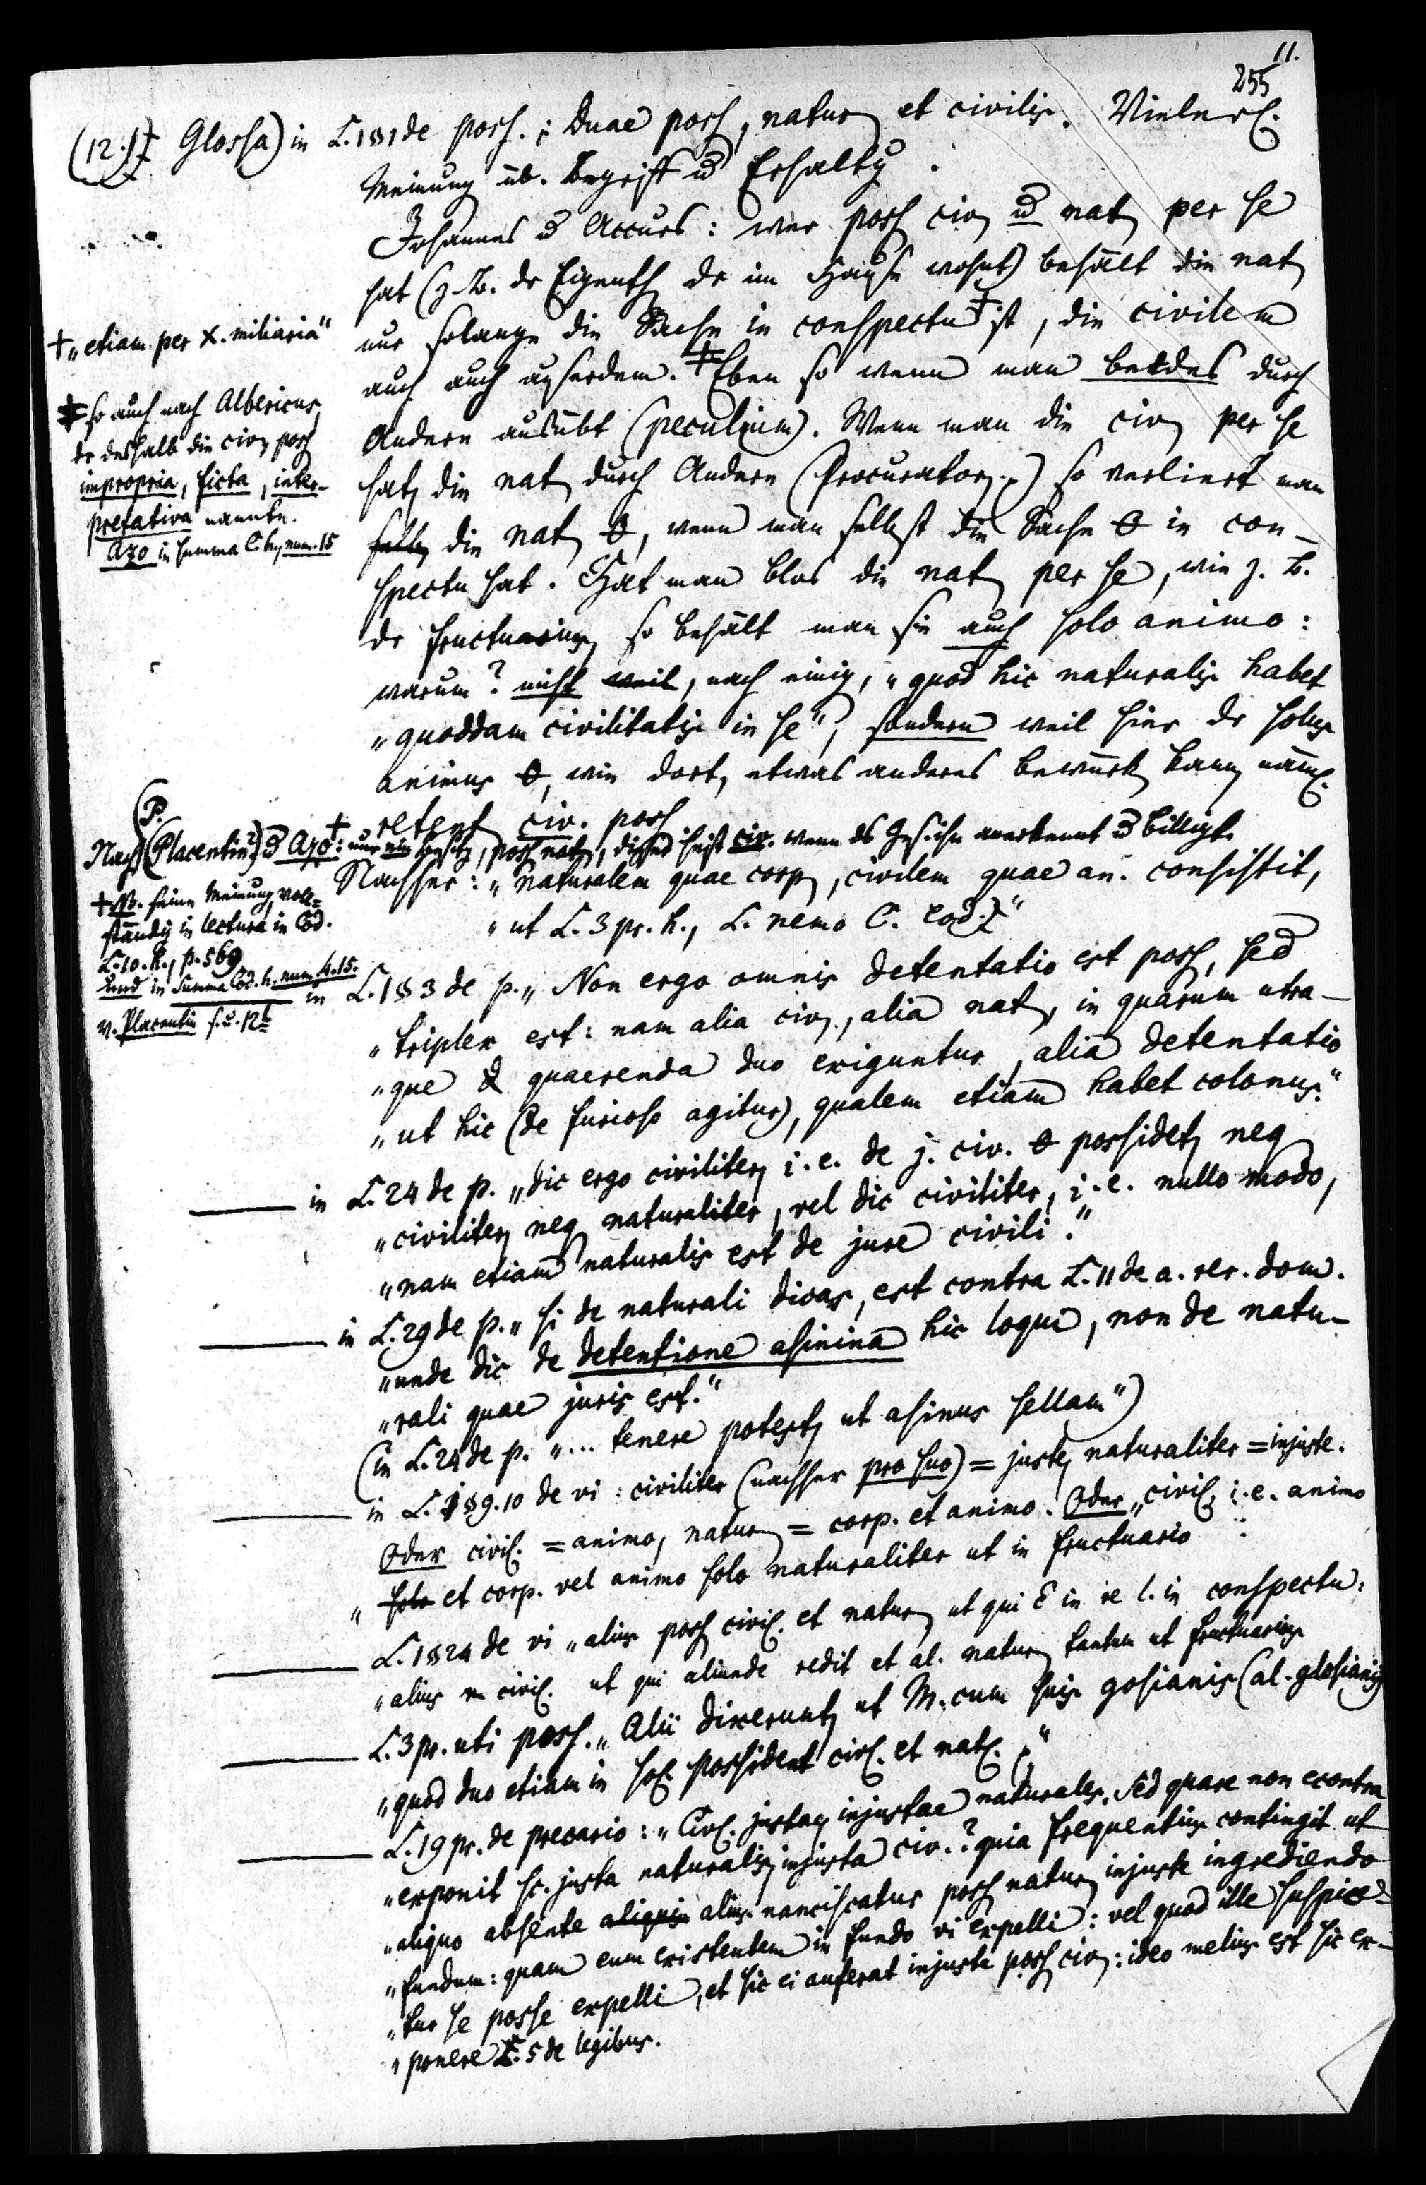 11.
255
(12.) Glossa) in L.1§1 de poss.: Duae poss, natur et civilis. Vielerl.
Meinung üb. Begriff u Erhaltg.
Johannes u Accurs: wer poss civ u nat per se
hat (z.B. dr Eigenth dr im Hause wohnt) behält die nat
nur solange die Sache in conspectu + ist, die civilem
auch auch außerdem. ‡ Eben so wenn man beides durch
Andere ausübt (peculium). Wenn man die civ per se
hat, die nat durch Andere (Procurator) so verliert man
die nat, wenn man selbst die Sache in con-
spectu hat. Hat man blos die nat per se, wie z.B.
dr fructuarius, so behält man sie auch solo animo:
warum? nicht weil, nach einig, „quod hic naturalis habet
„quoddam civilitatis in se", sondern weil hier dr solus
animus, wie dort, etwas anderes bewürk kann, näml.
retent civ. poss
+ „etiam per X. miliaria"
‡ so auch nach Albericus,
dr deshalb die civ poss
impropria, ficta, inter-
pretativa nannte.
Azo in summa C. h., num. 15
(P.
Nach (Placentin?) u Azo +: nur ein Besitz, poss nat, dieser heißt civ. wenn ds Ges. ihn anerkennt u billigt.
+ NB. seine Meinung voll-
ständig in lectura in Cod.
L.10. h., p. 569
und in Summa Cod. h. num. 4. 15.
v. Placentin s.u. 12b
Nachher: „naturalem quae corp, civilem quae an. consistit,
„ut L.3 pr. h., L. nemo C. eod."
in L.1§3 de p. „Non ergo omnis detentatio est poss, sed
„triplex est: nam alia civ, alia nat, in quarum utra-
„que quaerenda duo exiguntur, alia detentatio
„ut hic (de furioso agitur), qualem etiam habet colonus."
in L.24 de p. „dic ergo civiliter i.e. de j. civ. possidet neq
„civiliter neq naturaliter, vel dic civiliter, i.e. nullo modo,
„nam etiam naturalis est de jure civili."
in L.29 de p. „si de naturali dicas, est contra L.11 de a. rer. dom.
„unde dic de detentione asinina hic loqui, non de natu-
„rali quae juris est."
(in L.24 de p. „... tenere potest, ut asinus sellam")
in L.1§9.10 de vi: civiliter (nachher pro suo) = juste, naturaliter = injuste.
Oder civil. = animo, natur = corp. et animo. Oder „civil. i.e. animo
„solo et corp. vel animo solo naturaliter ut in fructuario
L.1§24 de vi „alius poss civil. et natur ut qui E in re l. in conspectu:
„alius civil. ut qui aliunde redit et al. natur tantum ut fructuarius
L.3 pr. uti poss. „Alii dixerunt, ut M. cum suis gosianis (al. glosianis)
„quod duo etiam in sol. possident civil. et natl."
L.19 pr. de precario: „Civl. justa, injustae naturales. Sed quare non econtra
„exponit sc. justa naturalis, injusta civ.? quia frequentius contingit ut
„aliquo absente aliquis alius nanciscatur poss natur injuste ingrediendo
„fundum: quam eum existentem in fundo vi expelli: vel quod ille suspica-
„tur se posse expelli, et sic ei auferat injuste poss civ: ideo melius est sic ex-
„ponere L.5 de legibus.